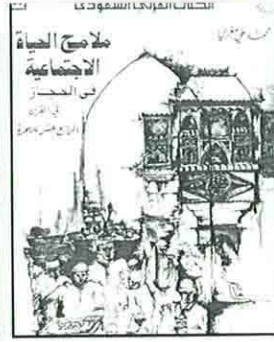 الكتاب العربي السعودي
محمد علي مغربي
ملامح الحياة
الاجتماعية
في الحجاز
في القرن
الرابع عشر للهجرة